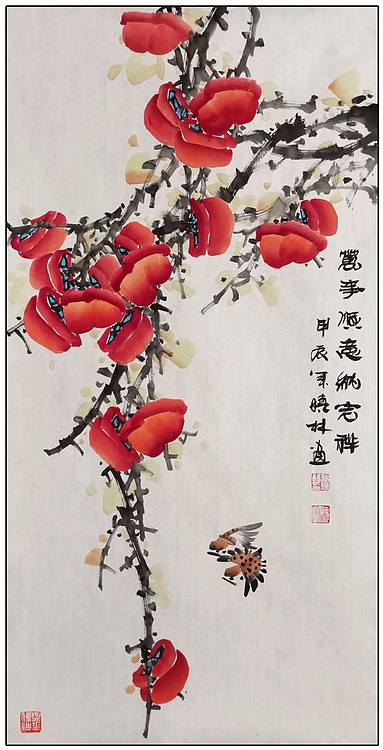 萬事順意納吉祥
甲辰年曉林畫